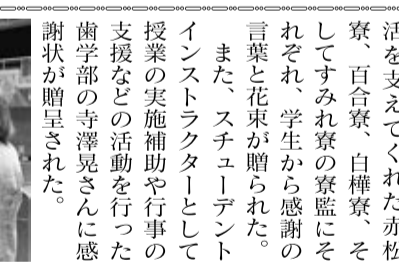 活を支えてくれた赤松
寮、百合寮、白樺寮、そ
してすみれ寮の寮監にそ
れぞれ、学生から感謝の
言葉と花束が贈られた。
また、スチューデント
インストラクターとして
授業の実施補助や行事の
支援などの活動を行った
歯学部の寺澤晃さんに感
謝状が贈呈された。